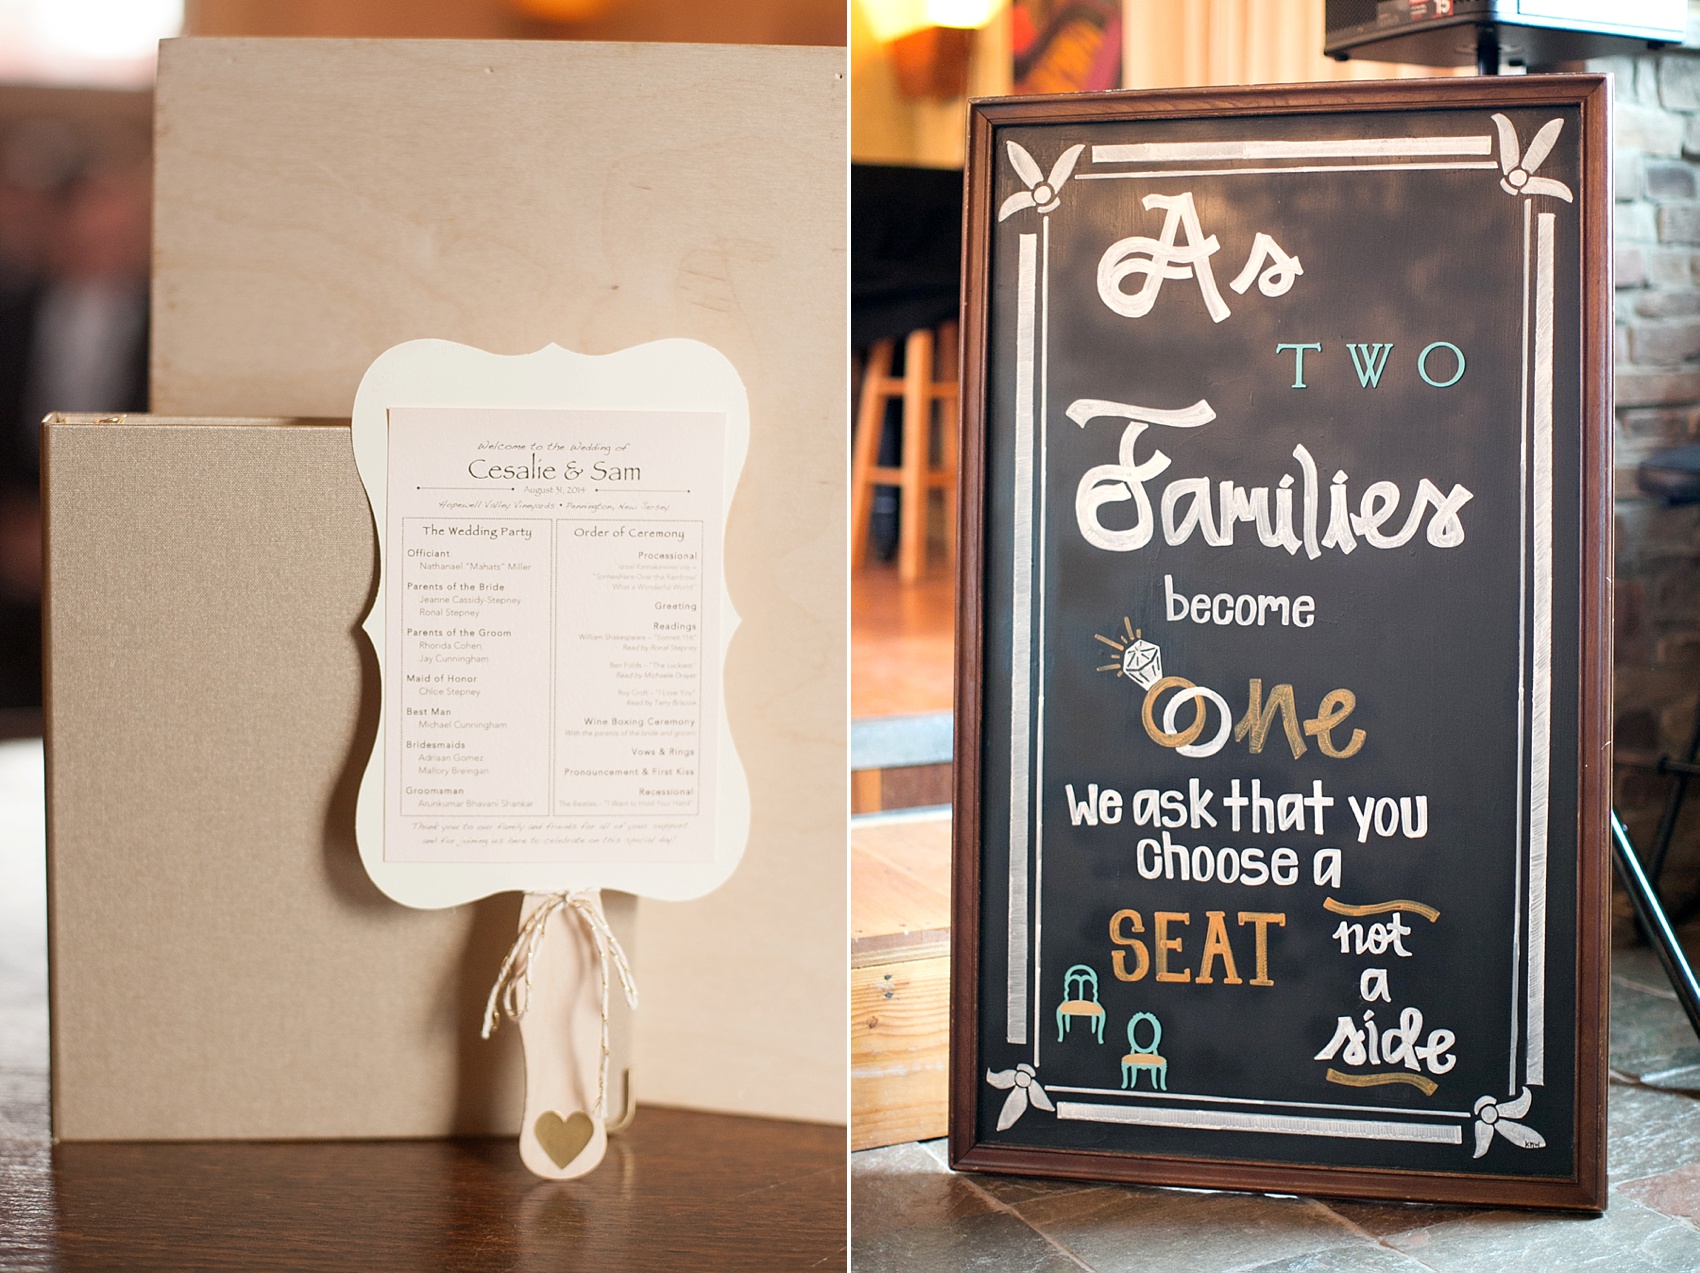 Welcome to the Wedding of
Cesalie & Sam
August 31, 2014
Hopewell Valley Vineyards • Pennington, New Jersey
The Wedding Party
Officiant
Nathanael "Mahats" Miller
Parents of the Bride
Jeanne Cassidy-Stepney
Ronal Stepney
Parents of the Groom
Rhonda Cohen
Jay Cunningham
Maid of Honor
Chloe Stepney
Best Man
Michael Cunningham
Bridesmaids
Adriaan Gomez
Mallory Brenigan
Groomsman
Arunkumar Bhavani Shankar
Order of Ceremony
Processional
"Somewhere Over the Rainbow/
What a Wonderful World"
Greeting
Readings
William Shakespeare – "Sonnet 116"
Read by Ronal Stepney
Ben Folds – "The Luckiest"
Read by Michaele
Roy Croft – "I Love You"
Read by Terry
Wine Boxing Ceremony
With the parents of the bride and groom
Vows & Rings
Pronouncement & First Kiss
Recessional
The Beatles – "I Want to Hold Your Hand"
Thank you to our family and friends for all of your support
and for joining us here to celebrate on this special day!
15
As
TWO
Families
become
one
We ask that you
choose a
SEAT not
a
side